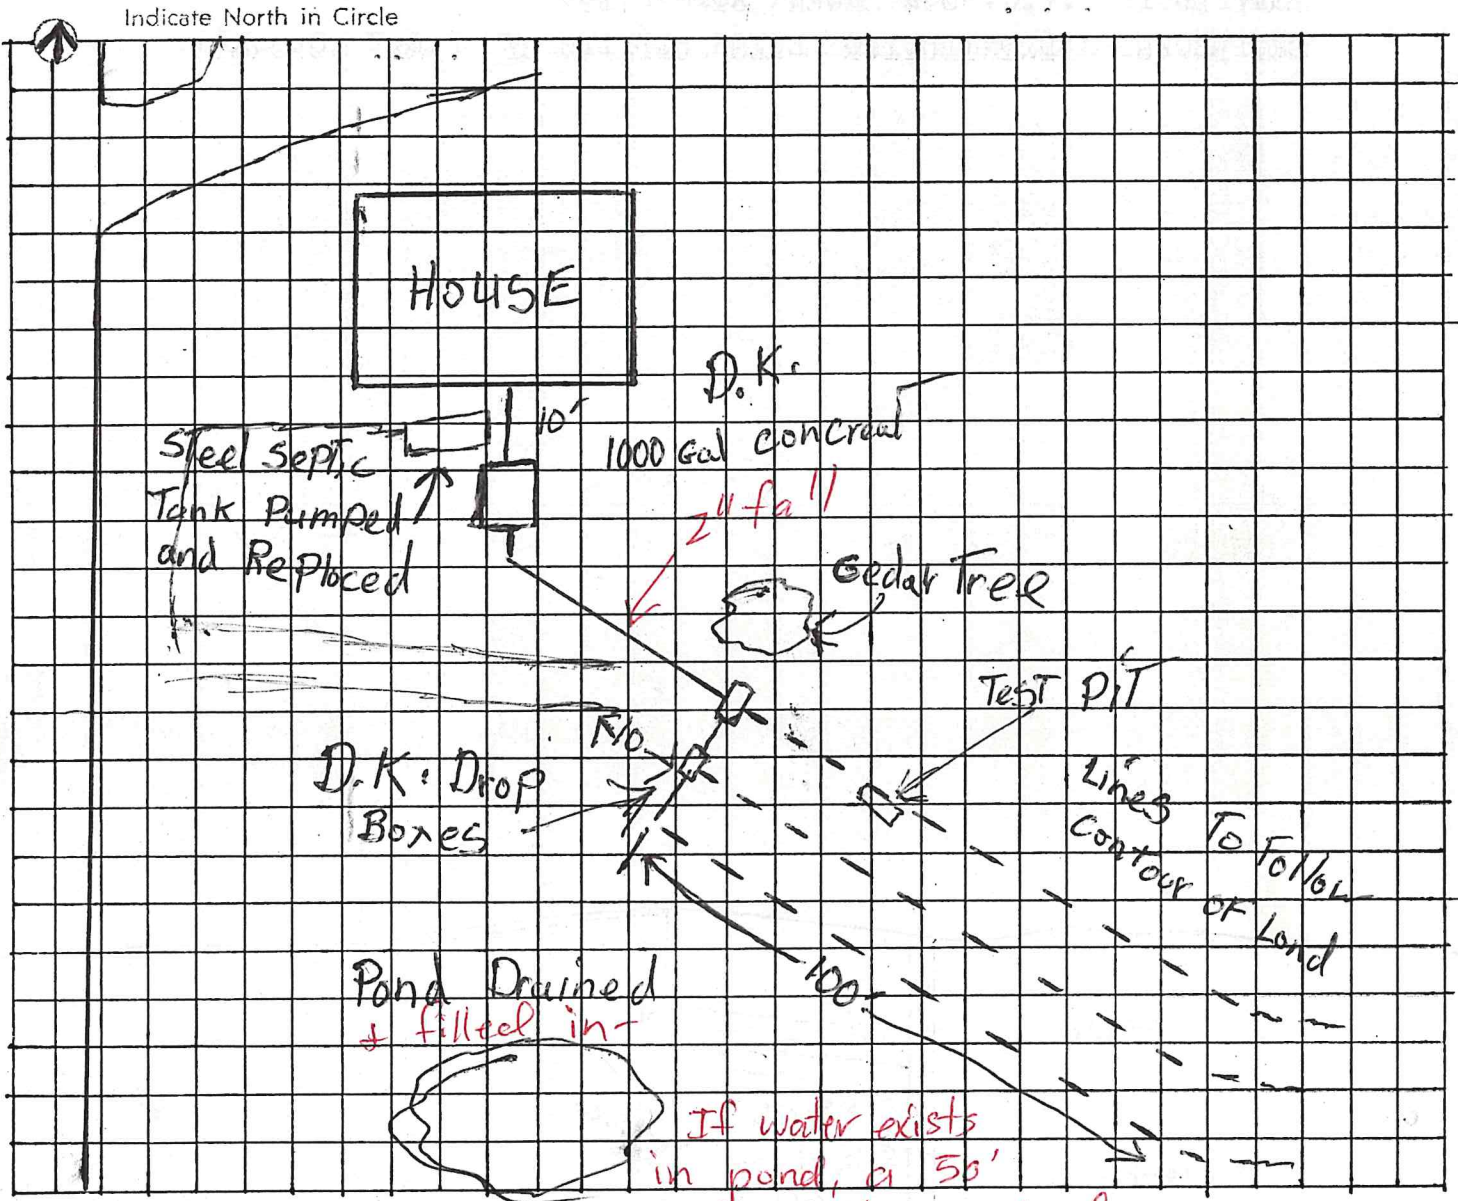 Indicate North in Circle
HOUSE
D.K.
10'
1000 Gal concreat
Steel Septic
Tank Pumped
and Replaced
2" fall
Cedar Tree
Test Pit
D.K. Drop
Boxes
Lines To Follow
Contour of Land
100
Pond Drained
+ filled in-
If water exists
in pond, a 50'